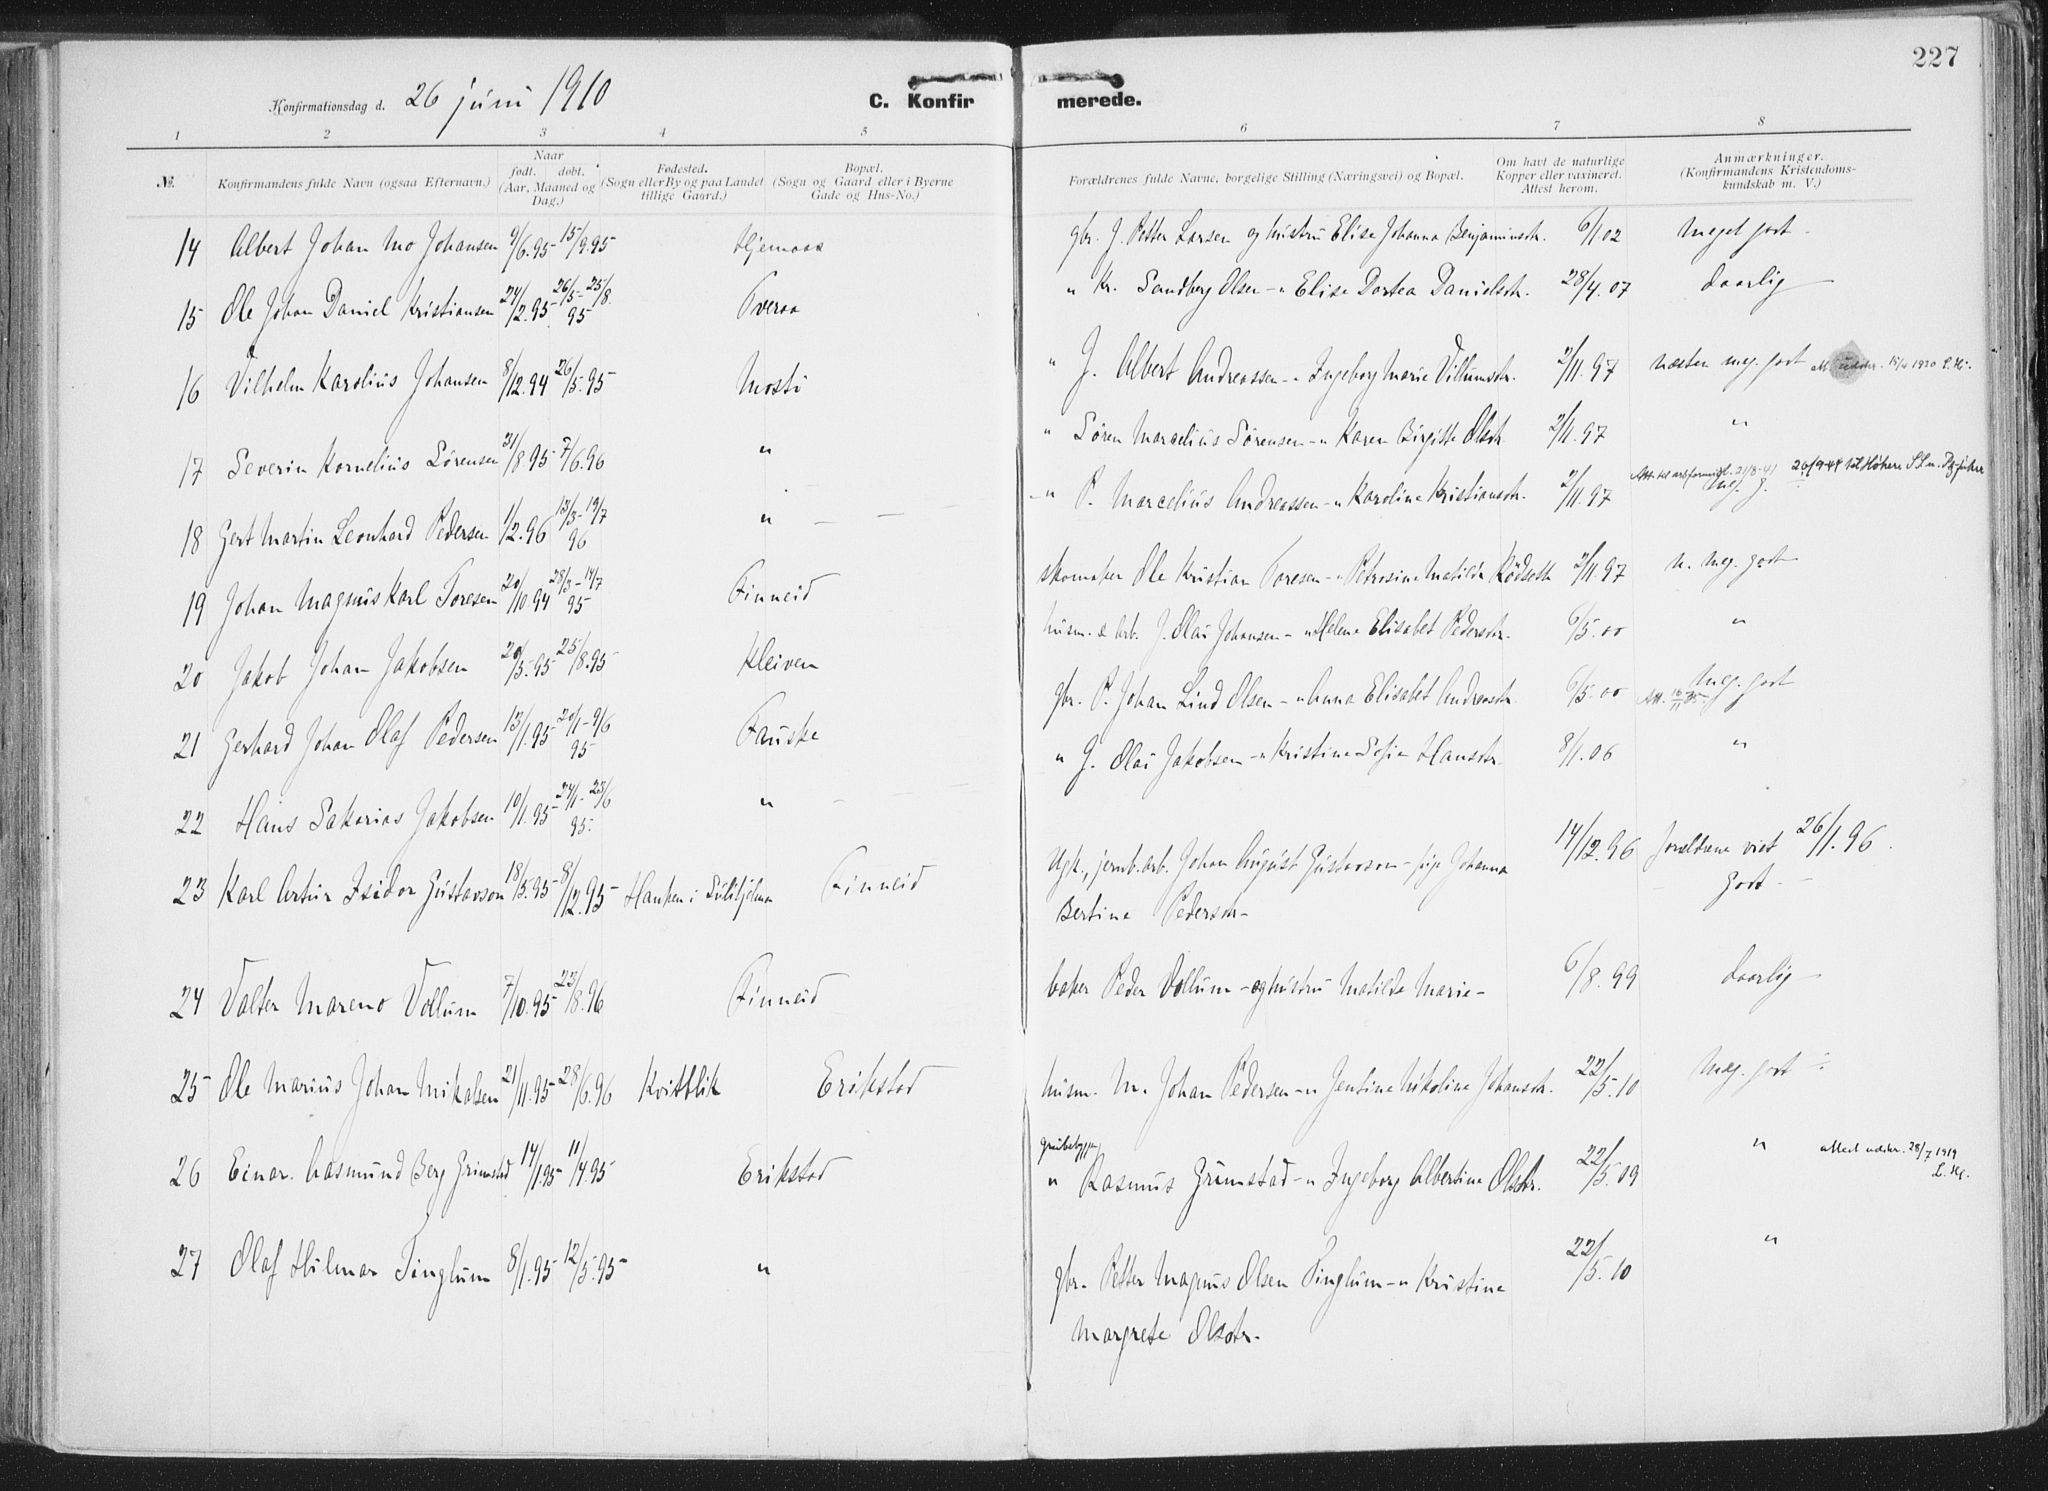 227
Konfirmationsdag d. 26 juni 1910
C. Konfirmerede.
1 2 3 4 5 6 7 8
№.
Konfirmandens fulde Navn (ogsaa Efternavn.)
Naar født. døbt. (Aar, Maaned og Dag.)
Fødested. (Sogn eller By og paa Landet tillige Gaard.)
Bopæl. (Sogn og Gaard eller i Byerne Gade og Hus-No.)
Forældrenes fulde Navne, borgelige Stilling (Næringsvei) og Bopæl.
Om havt de naturlige Kopper eller vaxineret. Attest herom.
Anmærkninger. (Konfirmandens Kristendomskundskab m. V.)
14 Albert Johan Mo Johansen 9/6.95 15/9.95 Hjemaas gbr. J. Petter Larsen og hustru Elise Johanna Benjaminsdtr. 6/1 02 Meget godt
15 Ole Johan Daniel Kristiansen 24/2.95 26/5-25/8. 95 Tveraa " Kr. Sandberg Olsen -" Elise Dortea Danielsdtr. 28/4.07 daarlig
16 Vilhelm Karolius Johansen 8/12.94 26/5.95 Mosti " J. Albert Andreassen -" Ingeborg Marie Villumsdtr. 2/11.97 næsten meg. godt
17 Severin Kornelius Sørensen 31/8.95 7/6.96 " " Sören Marcelius Sörensen -" Karen Birgitte Olsdtr. 2/11.97 "
18 Gert Martin Leonhard Pedersen 1/2.96 13/3-19/7 96 " " P. Marcelius Andreassen -" Karoline Kristiansdtr. 2/11 97 Meg. g.
19 Johan Magnus Karl Toresen 20/10.94 28/3-14/7 95 Finneid skomaker Ole Kristian Toresen -" Petrosine Matilde Rödseth 2/11.97 n. meg. godt
20 Jakob Johan Jakobsen 20/5.95 25/8.95 Kleiven husm. & arb. J. Olai Johansen -" Helene Elisabet Pedersdtr. 6/5.00 "
21 Gerhard Johan Olaf Pedersen 13/1.95 20/1-9/6 95 Fauske gbr. P. Johan Lind Olsen -" Anna Elisabet Andreasdtr. 6/5.00 Meg. godt
22 Hans Sakarias Jakobsen 10/1.95 24/1-23/6 95. " " J. Olai Jakobsen -" Kristine Sofie Hansdtr. 8/1.06 "
23 Karl Artur Isidor Gustavson 18/5.95 8/12.95 Hanken i Sulitjelma Finneid Ugk., jernb.arb. Johan August Gustavson - pige Johanna 14/12.96 forældrene viet 26/1.96.
Bertine Pedersdtr. godt
24 Valter Mareno Vollum 7/10.95 23/8.96 Finneid baker Peder Vollum - og hustru Matilde Marie - 6/8.99 daarlig
25 Ole Marius Johan Mikalsen 21/11.95 28/6.96 Kvitblik Erikstad husm. M. Johan Pedersen -" Jentine Nikoline Johansdtr. 22/5.10 Meg. godt
26 Einar Aasmund Berg Grimstad 14/1.95 11/4.95 Erikstad " Rasmus Grimstad -" Ingeborg Albertine Olsdtr. 22/5.09 " attest udstr. 28/7 1919
27 Olaf Hilmar Tinglum 8/1.95 12/5.95 " gbr. Petter Magnus Olsen Tinglum -" Kristine 22/5.10 "
Margrete Olsdtr.